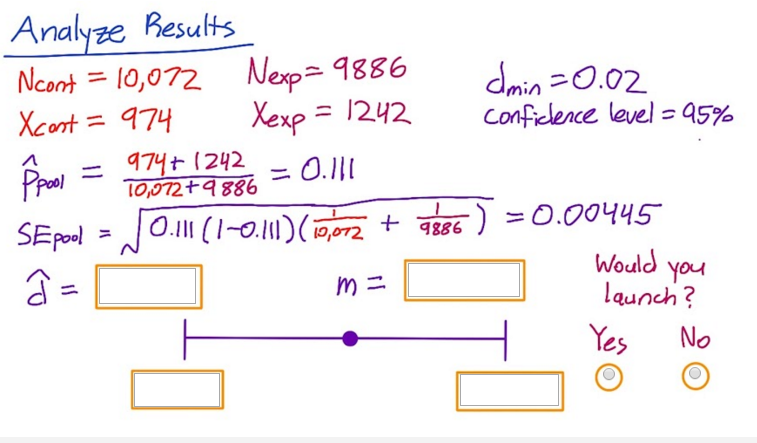 Analyze Results
Ncont = 10,072 Nexp = 9886 dmin = 0.02
Xcont = 974 Xexp = 1242 confidence level = 95%
p̂pool = 974 + 1242 / 10,072 + 9886 = 0.111
SEpool = √0.111 (1-0.111)(1/10,072 + 1/9886) = 0.00445
d̂ = m = Would you
launch?
Yes No